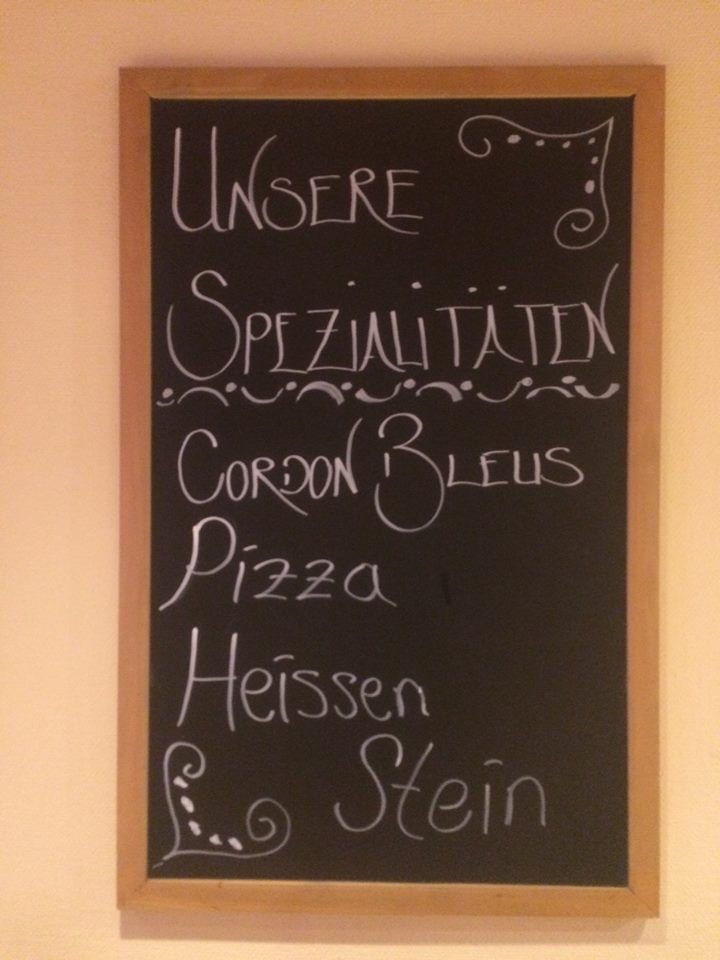 UNSERE
SPEZIALITÄTEN
CORDON BLEUS
Pizza
Heissen
Stein